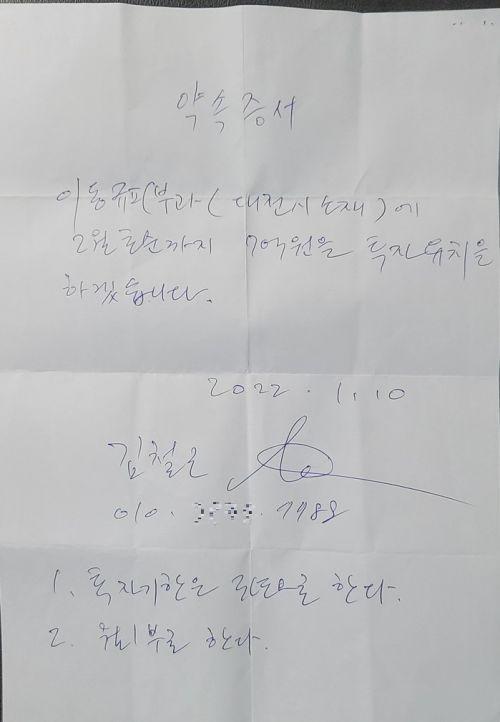 약속증서
이동규피부과 (대전시 소재)에
2월 초순까지 7억원을 투자유치를
하겠습니다.
2022. 1. 10
김철근
010. . 7788
1. 투자기한은 으로 한다.
2. 로 한다.